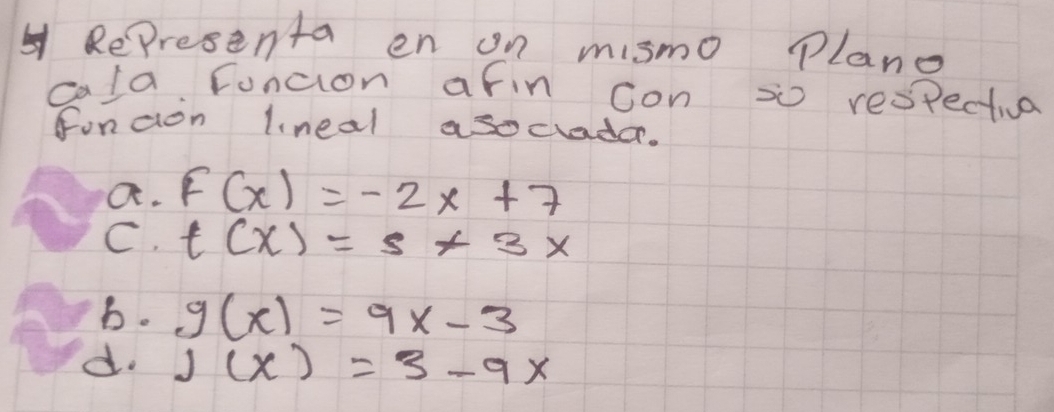 4 Representa en un mismo Plano
cada funcion afin con su respectiva
función lineal asociada.
a. F(x) = -2x + 7
c. t(x) = 5 + 3x
b. g(x) = 9x - 3
d. J(x) = 3 - 9x